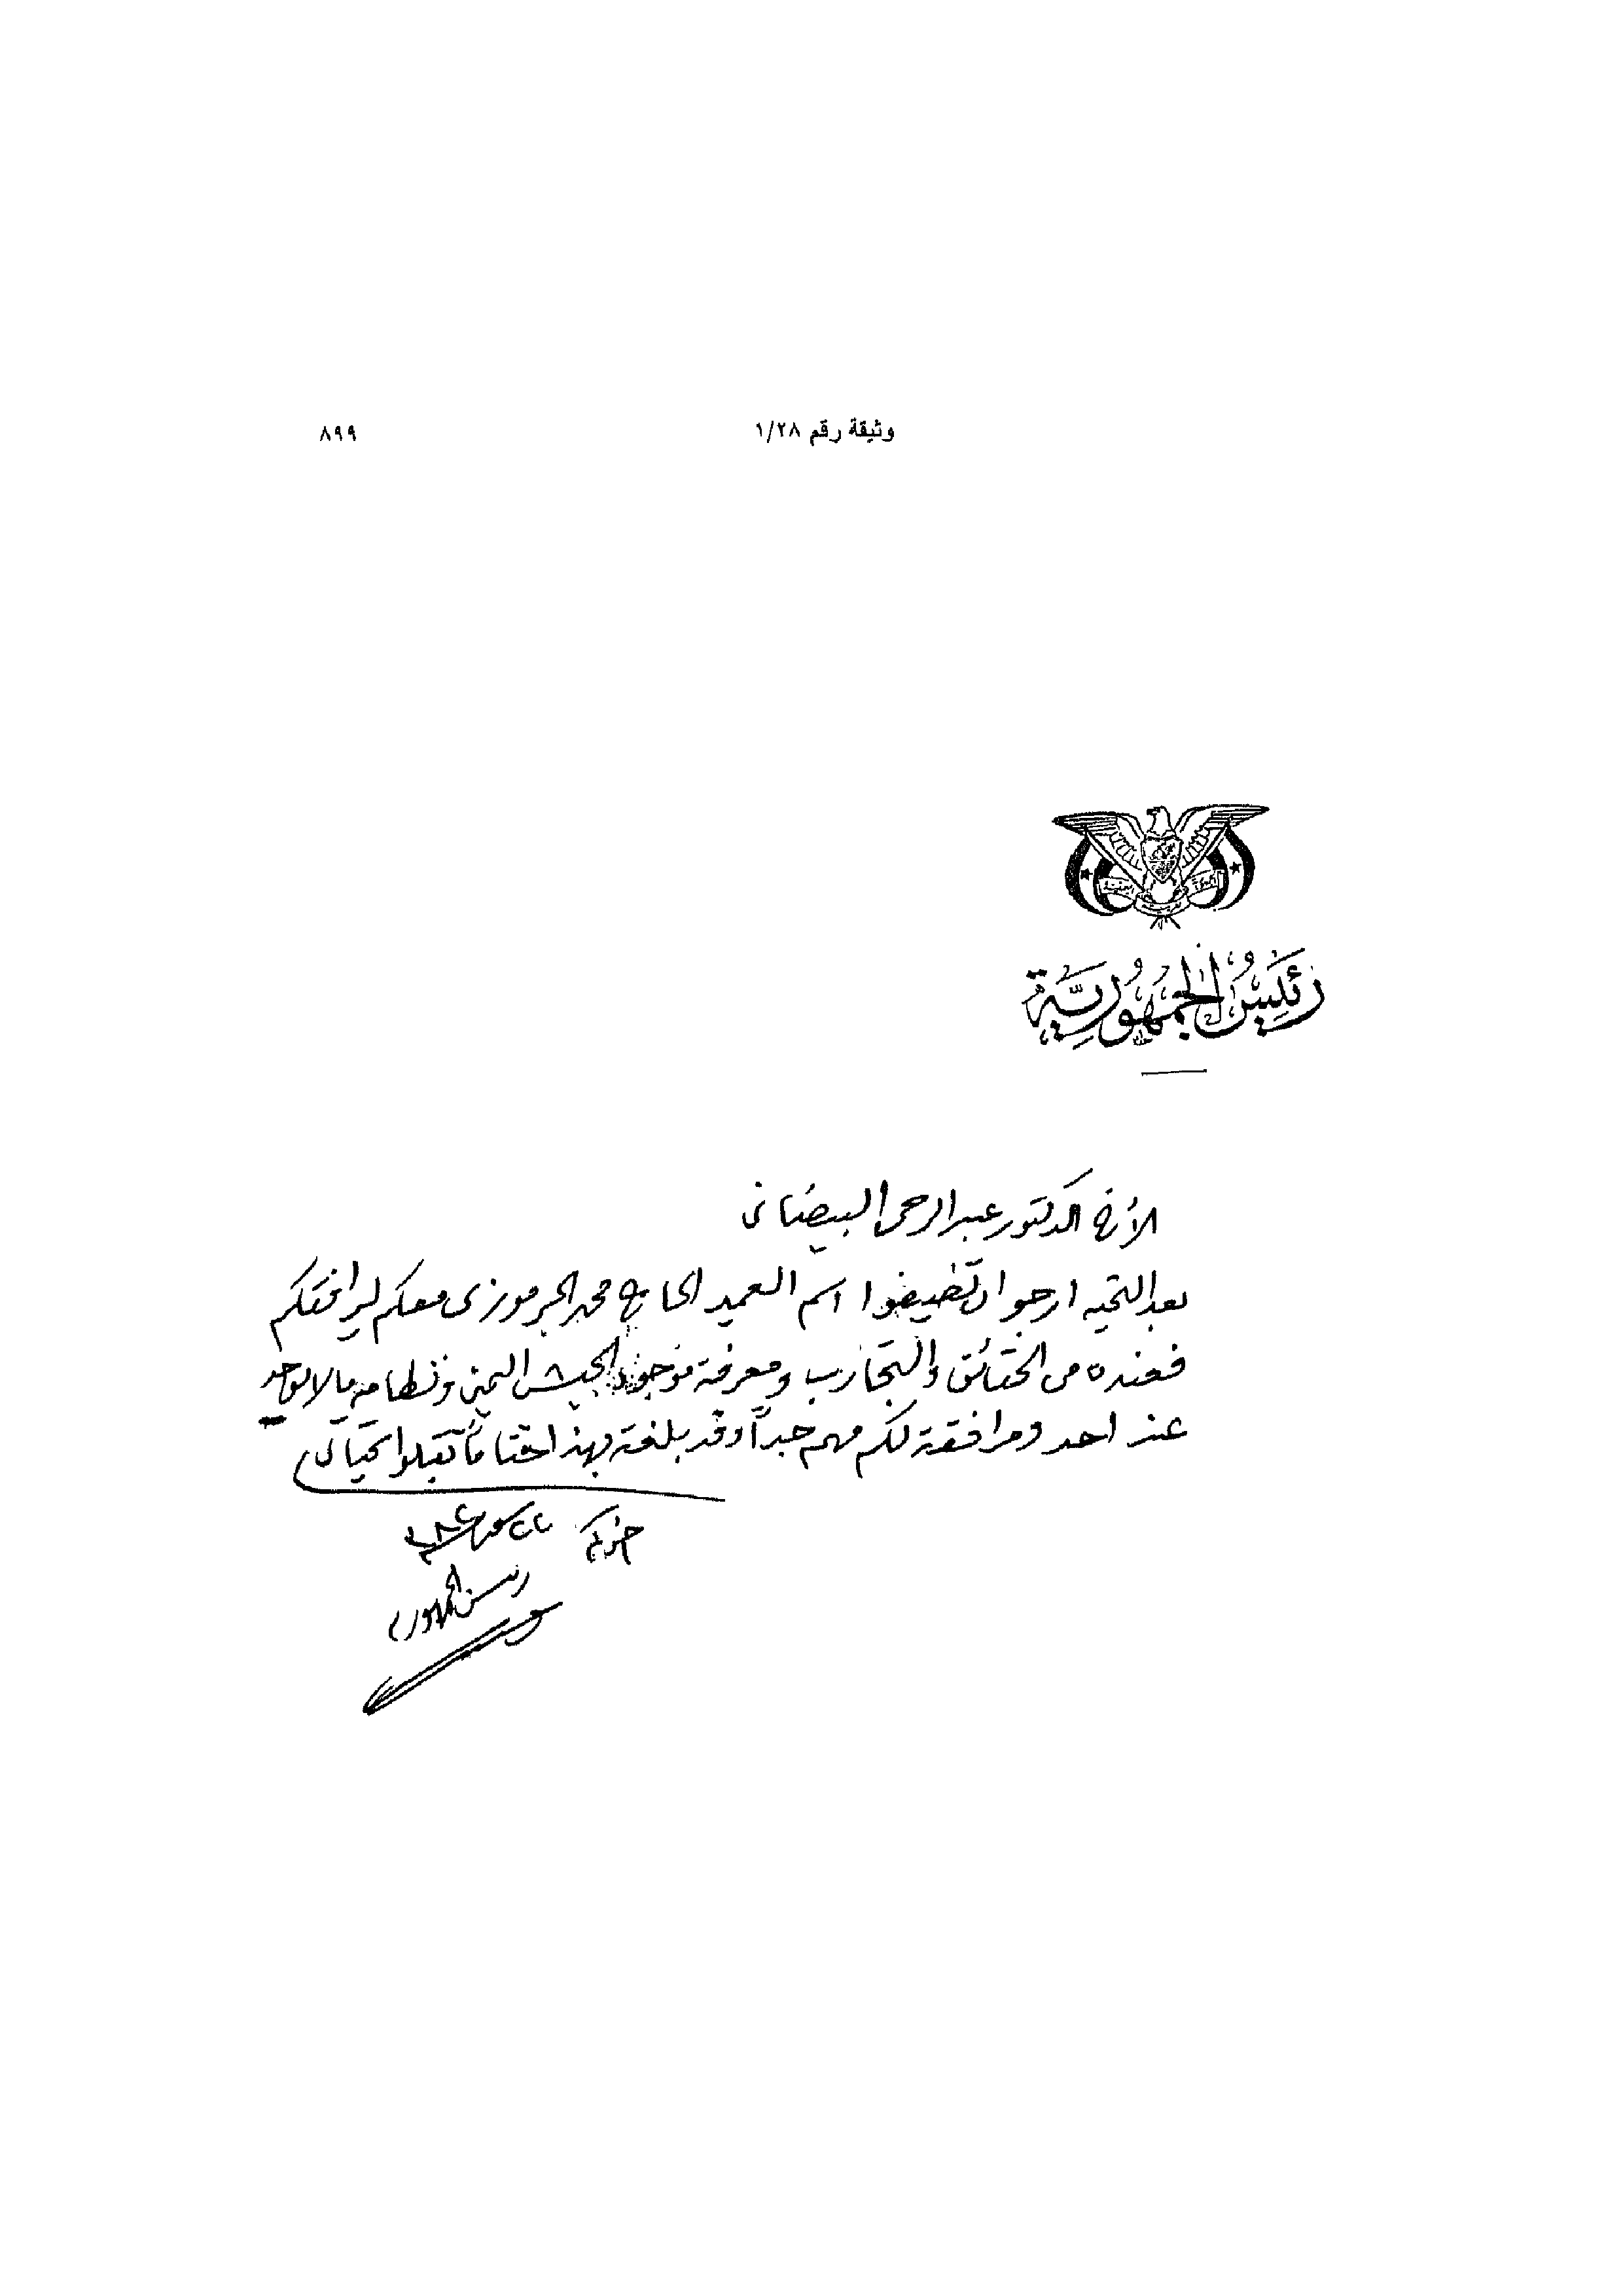 وثيقة رقم ١/٢٨ ٨٩٩
رئيس الجمهورية
الأخ الدكتور عبدالرحمن البيضانى
بعد التحيه ارجوا ان تضيفوا اسم العميد الحاج محمد الجرموزى معكم ليرافقكم
فعنده من الحقائق والتجارب ومعرفة موجود الجيش اليمنى ونظامه مالا يوجد
عند احد ومرافقته لكم مهم جداً وقد بلغته بهذا ختاماً تقبلوا تحياتى
اخوكم
رئيس الجمهورية